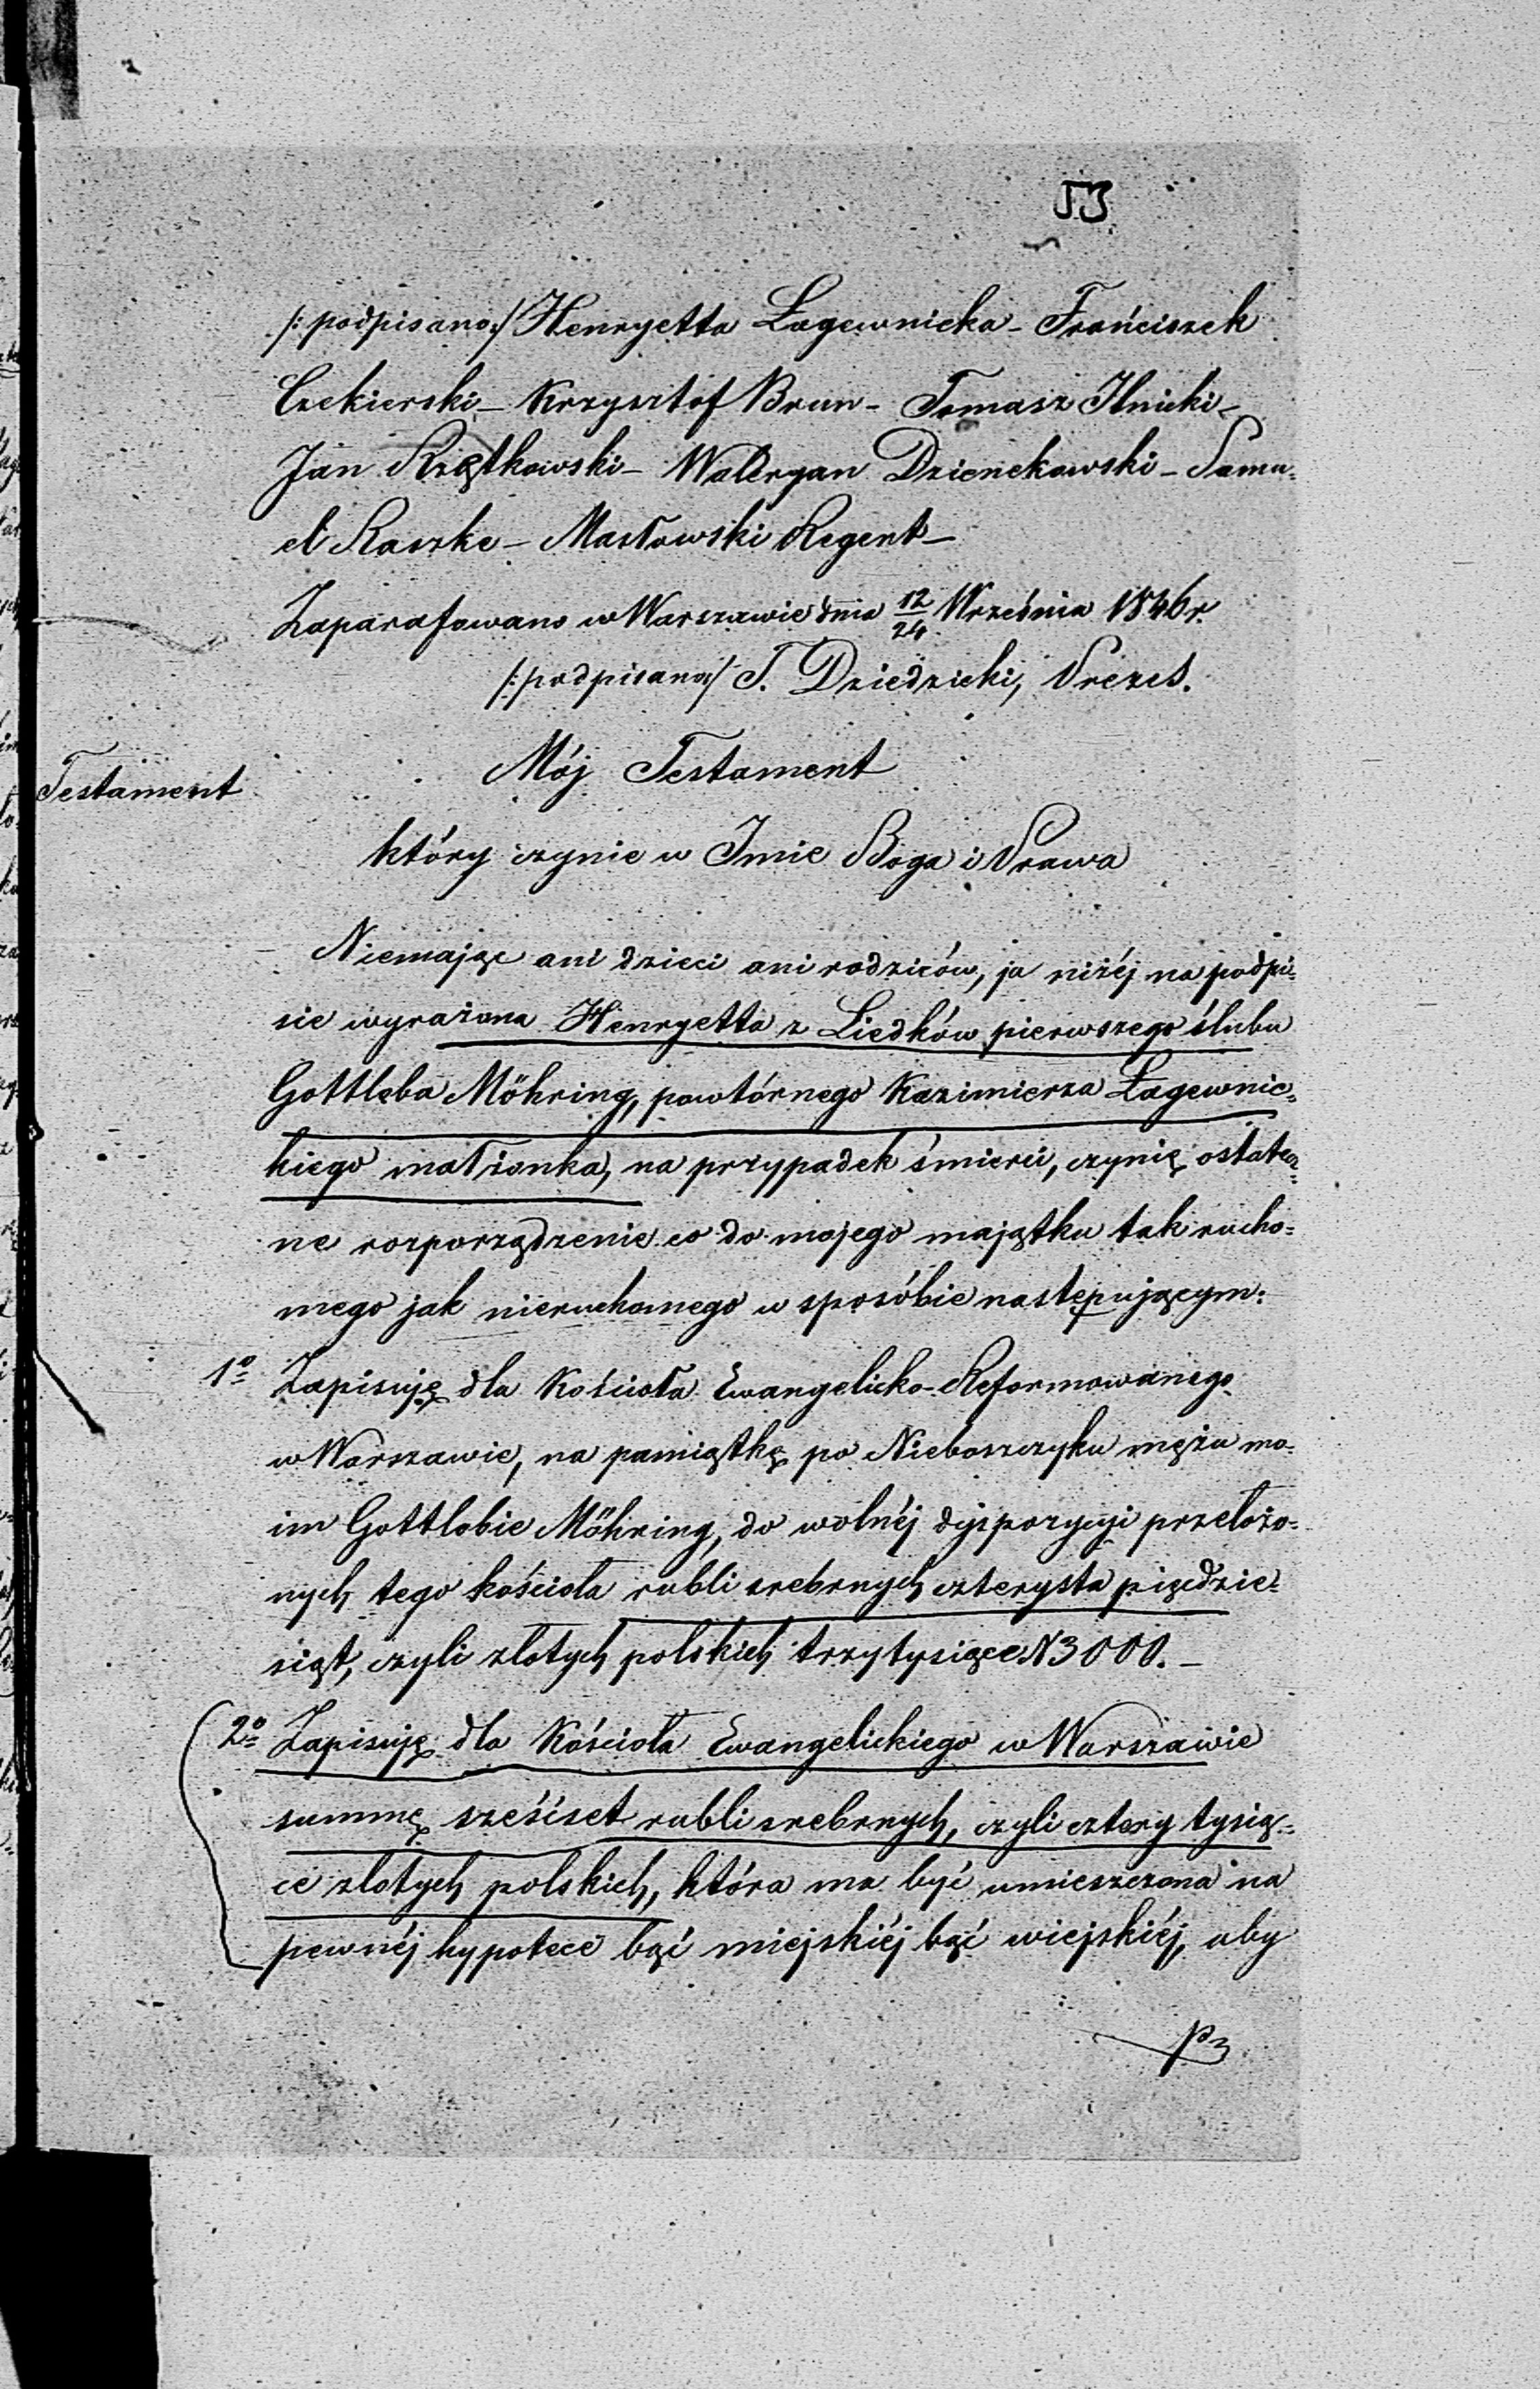 53
/: podpisano:/ Henryetta Łagewnicka – Frańciszek
Czekierski – Krzysztof Brun – Tomasz Ilnicki –
Jan Rzątkowski – Waleryan Dzienckowski – Samu-
el Raszke – Masłowski Regent –
Zaparafowano w Warszawie dnia 12/24 Września 1846 r.
/: podpisano:/ T. Dziedzicki, Prezes.
Testament
Mój Testament
który czynie w Imie Boga i Prawa
Niemając ani dzieci ani rodziców, ja niżéj na podpi-
sie wyrażona Henryetta z Liedków pierwszego ślubu
Gottloba Möhring, powtórnego Kazimierza Łagewnic-
kiego małżonka, na przypadek śmierci, czynię ostatecz-
ne rozporządzenie co do mojego majątku tak rucho-
mego jak nieruchomego w sposóbie następującym:
1º Zapisuję dla Kościoła Ewangelicko-Reformowanego
w Warszawie, na pamiątkę po Nieboszczyku mężu mo-
im Gottlobie Möhring, do wolnéj dyspozycyi przełożo-
nych tego kościoła rubli srebrnych czterysta pięćdzie-
siąt, czyli złotych polskich trzytysiące N 3000. –
2º Zapisuję dla Kościoła Ewangelickiego w Warszawie
summę sześćset rubli srebrnych, czyli cztery tysią-
ce złotych polskich, która ma być umieszczona na
pewnéj hypotece bąć miejskiéj bąć wiejskiéj, aby